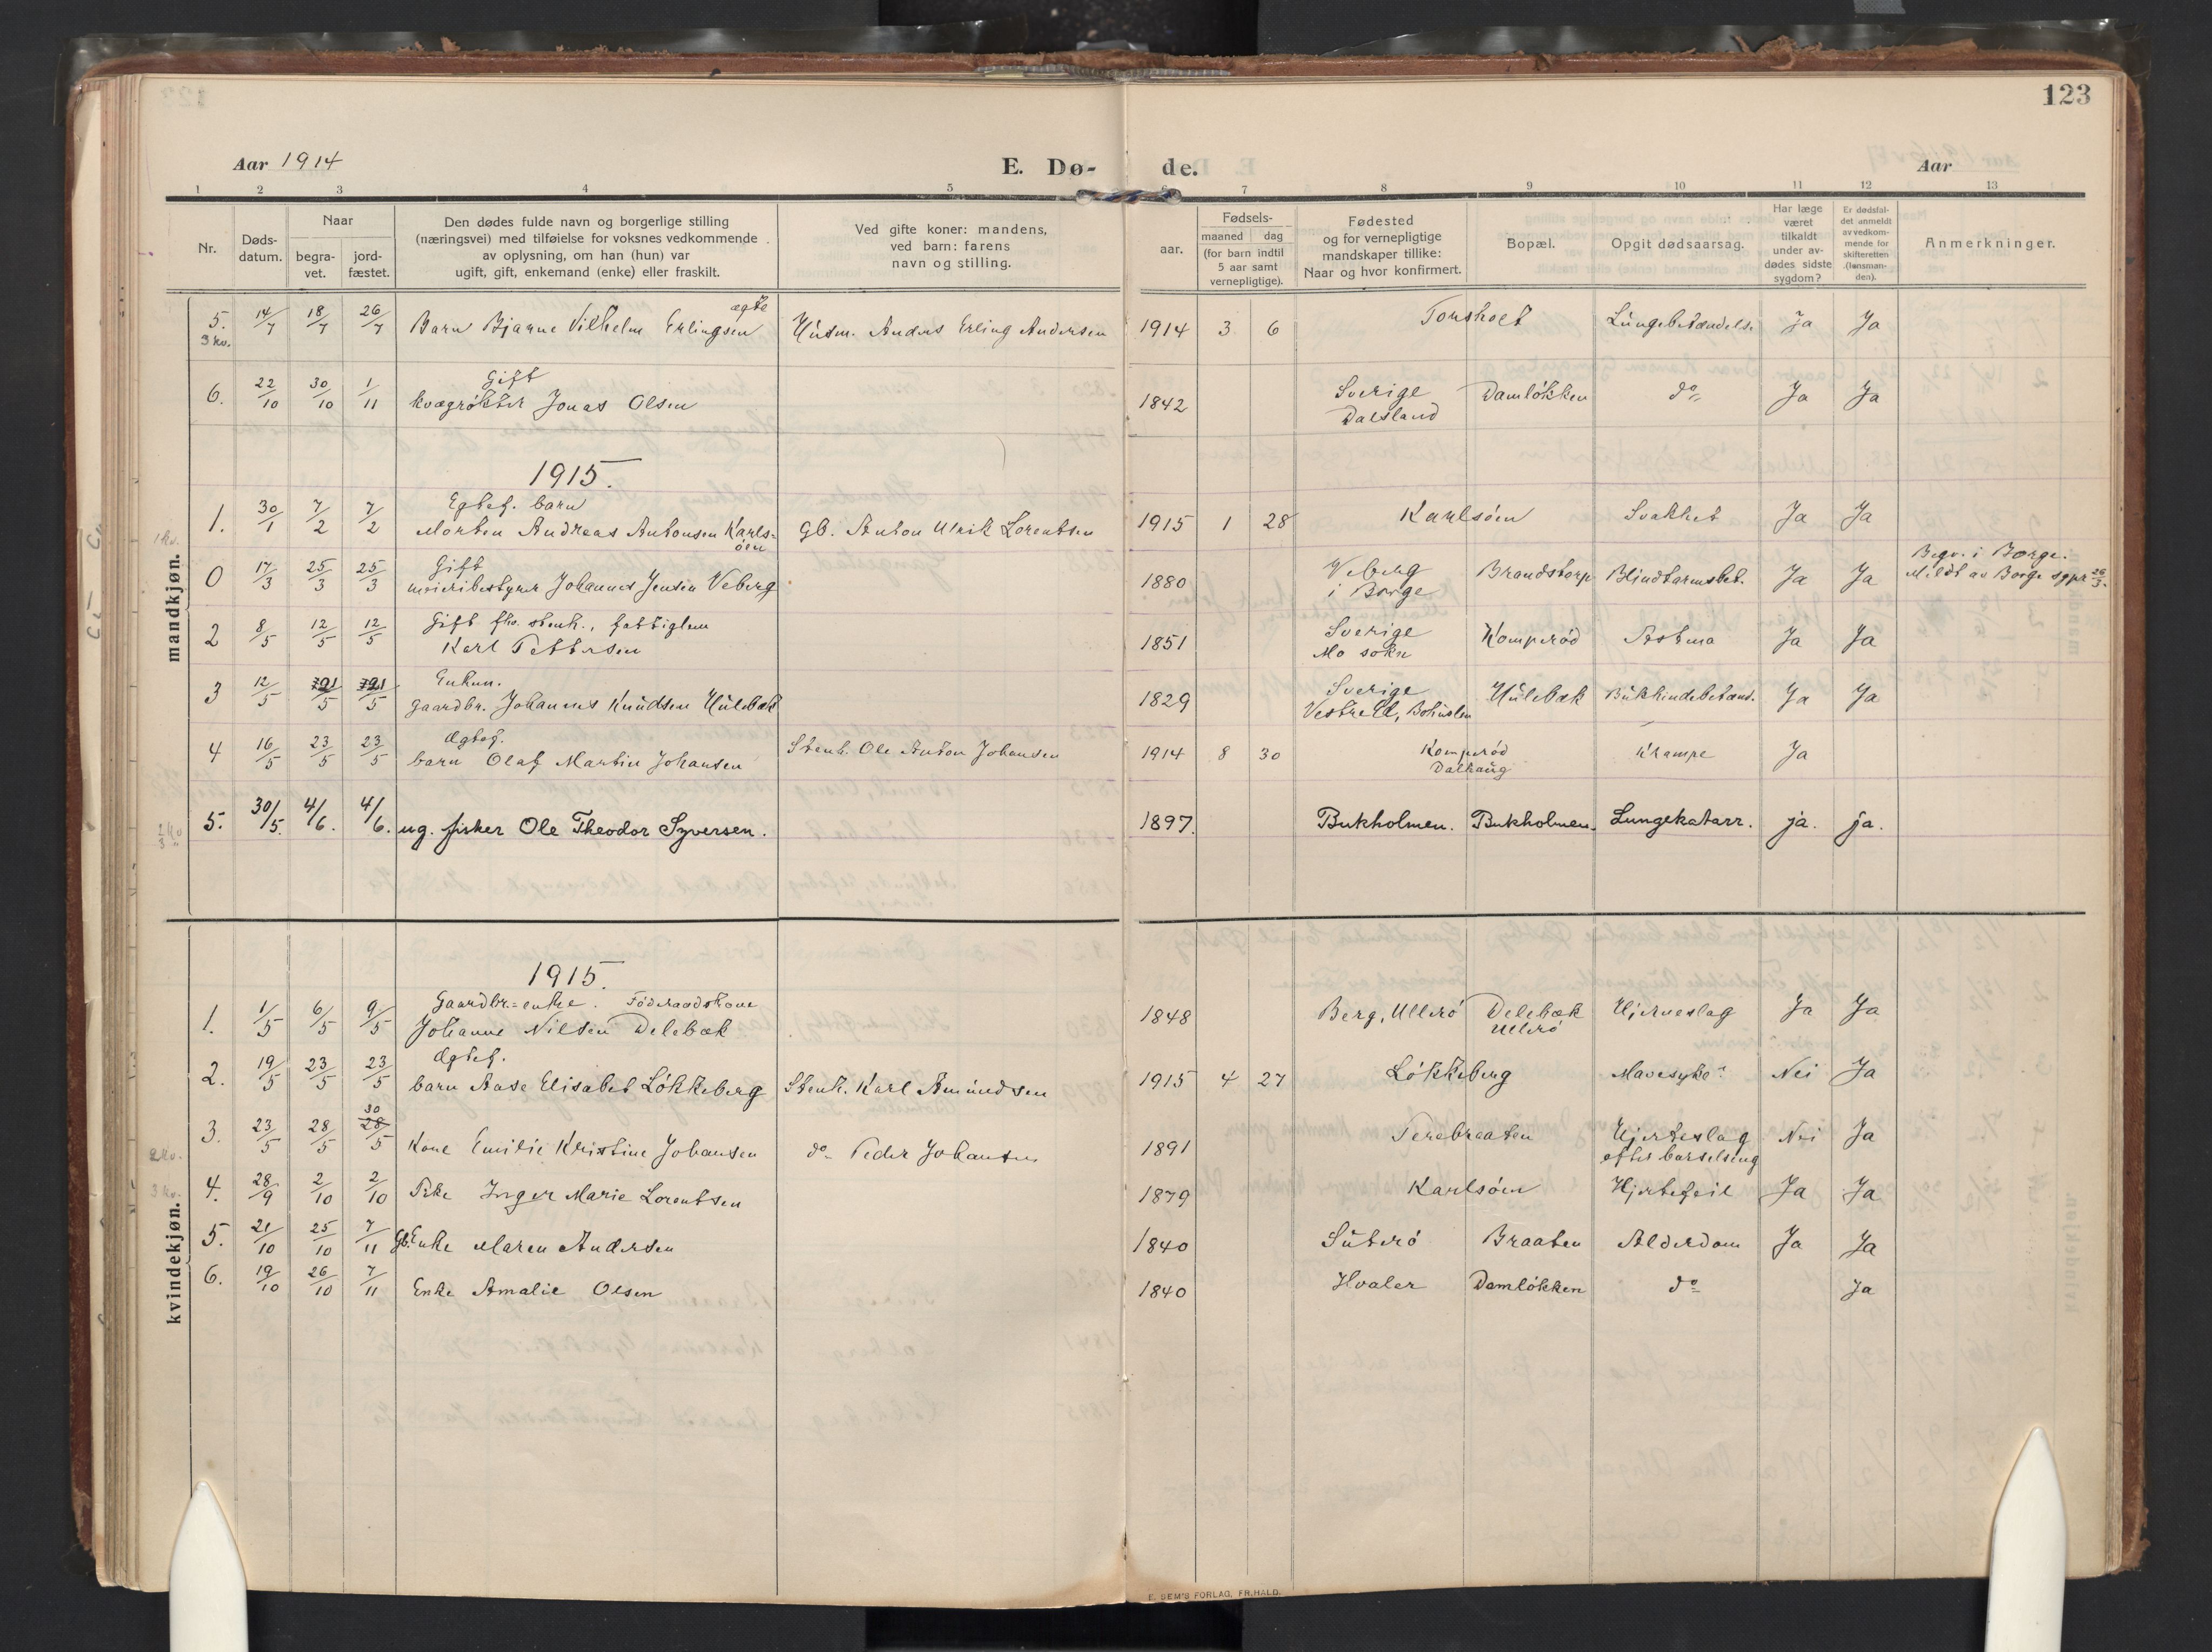 123
Aar 1914 E. Dø- de. Aar
1 2 3 4 5 6 7 8 9 10 11 12 13
Nr.
Døds-
datum.
Naar
begra-
vet.
jord-
fæstet.
Den dødes fulde navn og borgerlige stilling
(næringsvei) med tilføielse for voksnes vedkommende
av oplysning, om han (hun) var
ugift, gift, enkemand (enke) eller fraskilt.
Ved gifte koner: mandens,
ved barn: farens
navn og stilling.
aar.
Fødsels-
maaned dag
(for barn indtil
5 aar samt
vernepligtige).
Fødested
og for vernepligtige
mandskaper tillike:
Naar og hvor konfirmert.
Bopæl.
Opgit dødsaarsag.
Har læge
været
tilkaldt
under av-
dødes sidste
sygdom?
Er dødsfal-
det anmeldt
av vedkom-
mende for
skifteretten
(lensman-
den).
Anmerkninger.
mandkjøn.
ægte
5. 14/7 18/7 26/7 Barn Bjarne Vilhelm Erlingsen Husm. Anders Erling Andersen 1914 3 6 Torsholt Lungebetændelse Ja Ja
3 kv.
Gift
6. 22/10 30/10 1/11 kvægrøkter Jonas Olsen 1842 Sverige Damløkken do Ja Ja
Dalsland
1915.
Egtef. barn
1 kv.
1. 30/1 7/2 7/2 Morten Andreas Antonsen Karls= Gb. Anton Ulrik Lorentsen 1915 1 28 Karlsøen Svakhet Ja Ja
øen
Gift
0 17/3 25/3 25/3 meieribestyrer Johannes Jensen Veberg 1880 Veberg Brandstorp Blindtarmsbet. Ja Ja Begr. i Borge.
i Borge Meldt av Borge sgpr 26/3.
Gift fhv. stenh., fattiglem
2 8/5 12/5 12/5 Karl Pettersen 1851 Sverige Komperød Astma Ja Ja
Mo sokn
Enkem.
3 12/5 21/5 21/5 gaardbr. Johannes Knudsen Hulebæk 1829 Sverige Hulebæk Bukhindebetænd. Ja Ja
Vestre Ed, Bohuslen
Ægtef.
4 16/5 23/5 23/5 barn Olaf Martin Johansen Stenh. Ole Anton Johansen 1914 8 30 Komperød Krampe Ja
Dalhaug
5. 30/5. 4/6. 4/6. ug. fisker Ole Theodor Syversen. 1897. Bukholmen. Bukholmen. Lungekatarr. ja. ja.
2 kv
3 "
kvindekjøn.
1915.
Gaardbr.=enke. Føderaadskone
1. 1/5 6/5 9/5 Johanne Nilsen Delebæk 1848 Berg, Ullerø Delebæk Hjerneslag Ja Ja
Ullerø
Ægtef.
2. 19/5 23/5 23/5 barn Aase Elisabet Løkkeberg Stenh. Karl Amundsen 1915 4 27 Løkkeberg Mavesyke Nei Ja
30
3. 23/5 28/5 28/5 Kone Emilie Kristine Johansen do Peder Johansen 1891 Terebraaten Hjerteslag Nei Ja
efter barselseng
2 kv.
3 kv.
4. 28/9 2/10 2/10 Pike Inger Marie Lorentsen 1879 Karlsøen Hjertefeil Ja Ja
5. 21/10 25/10 7/11 Gb. Enke Maren Andersen 1840 Suterø Braaten Alderdom Ja Ja
6. 19/10 26/10 7/11 Enke Amalie Olsen 1840 Hvaler Damløkken do Ja
E. SEM'S FORLAG, FR.HALD.